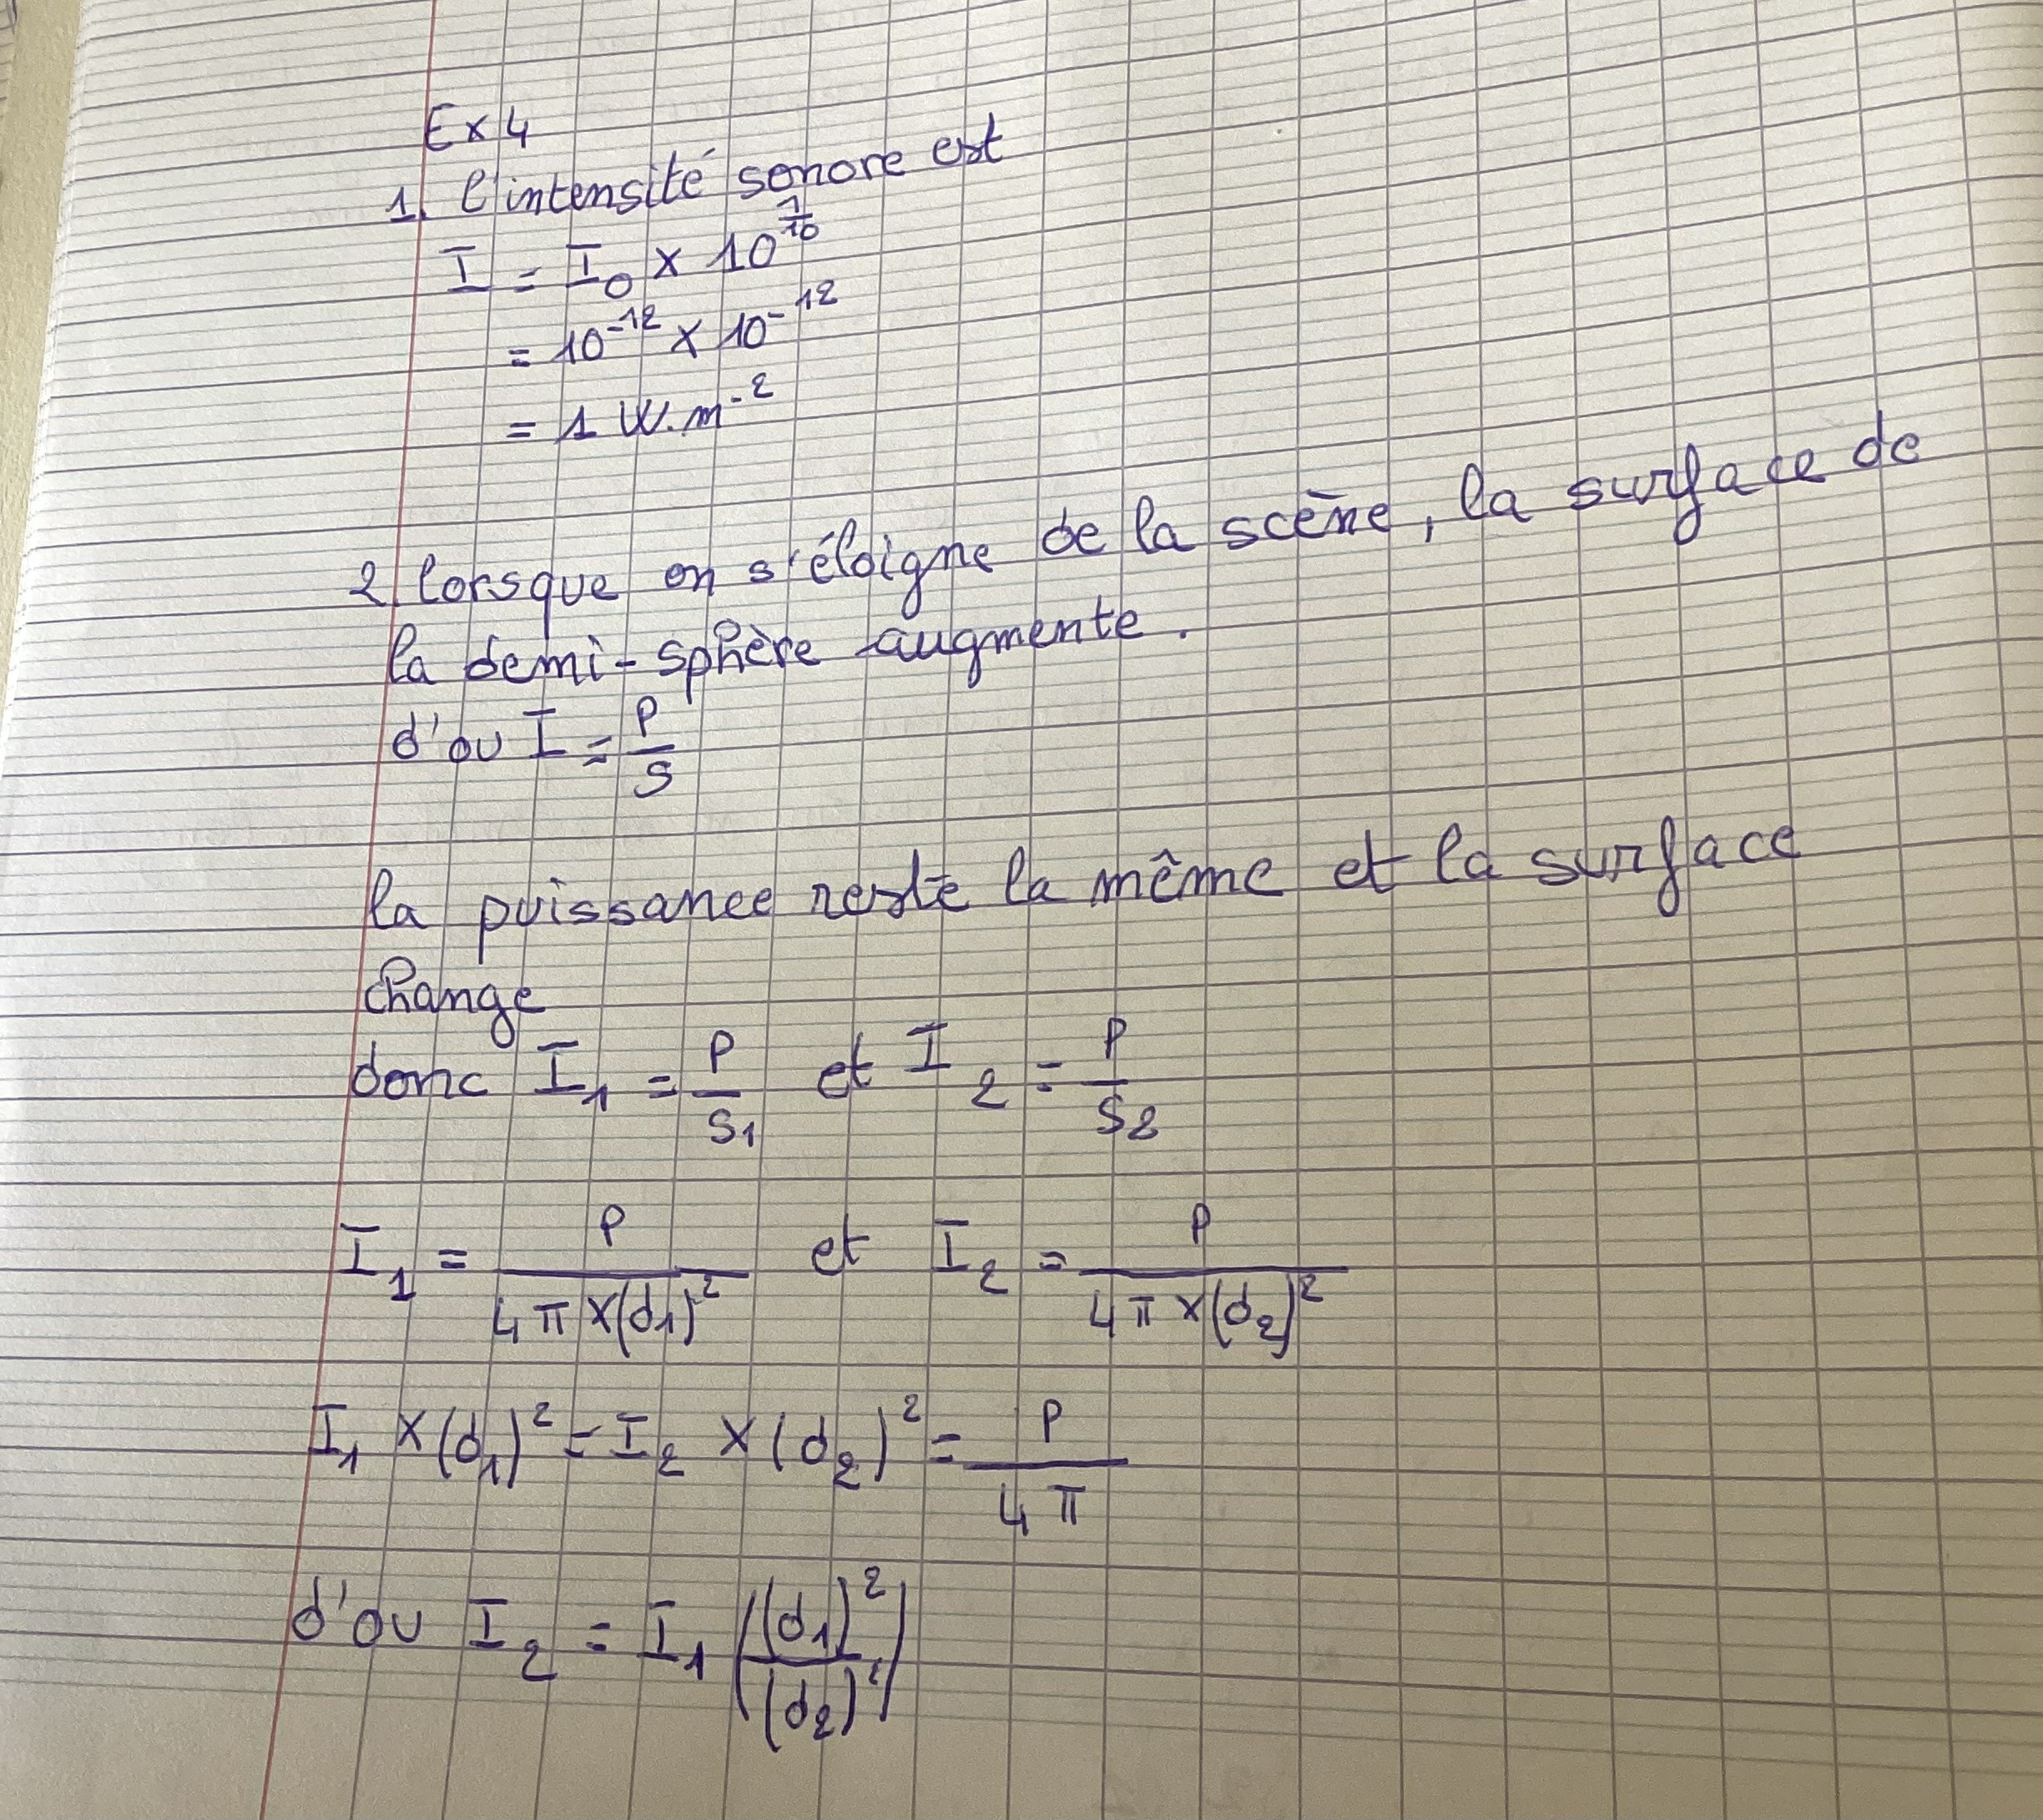 Ex 4
1. l'intensité sonore est
I = I₀ × 10^(1/10)
= 10⁻¹² × 10⁻¹²
= 1 W.m⁻²
2. lorsque on s'éloigne de la scène, la surface de
la demi-sphère augmente.
d'ou I = P/S
la puissance reste la même et la surface
change
donc I₁ = P/S₁ et I₂ = P/S₂
I₁ = P/(4π×(d₁)²) et I₂ = P/(4π×(d₂)²)
I₁ ×(d₁)² = I₂ ×(d₂)² = P/(4π)
d'ou I₂ = I₁ ((d₁)²/(d₂)²)